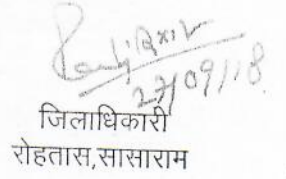 27/09/18
जिलाधिकारी
रोहतास,सासाराम